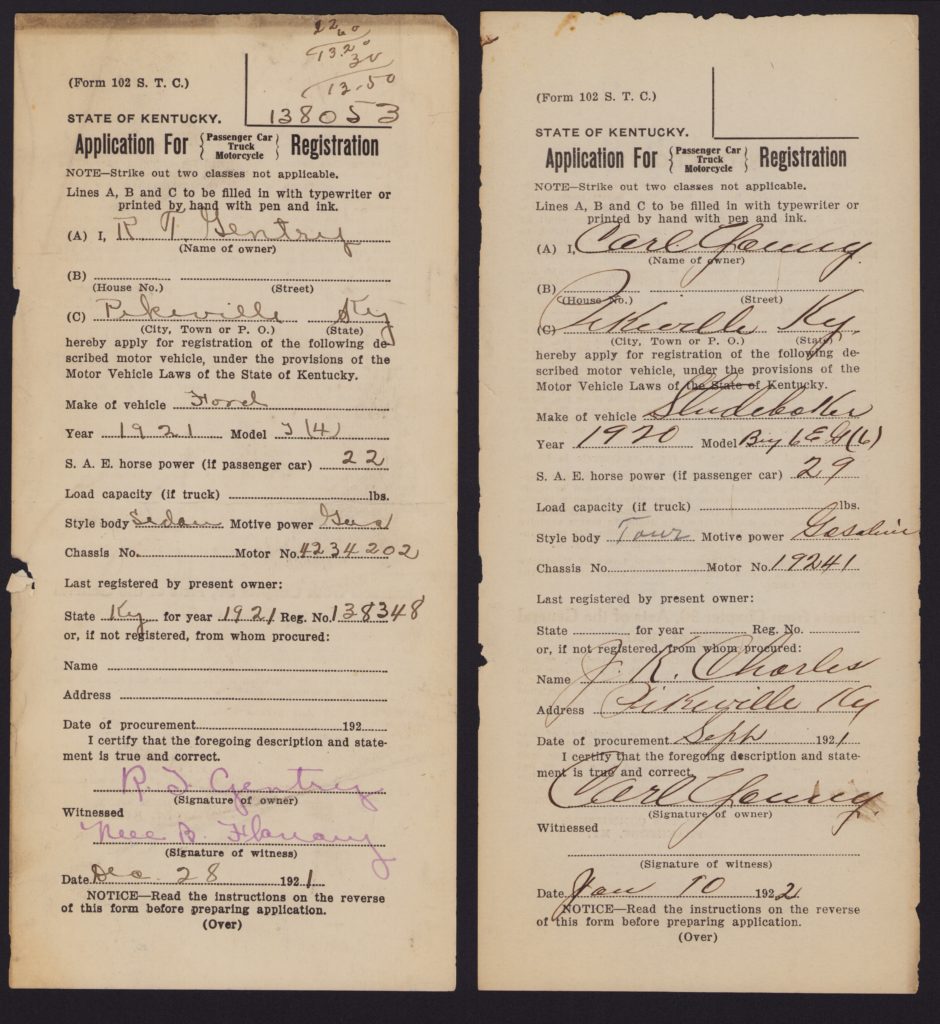 22 60
13.20
30
13.50
(Form 102 S. T. C.)
138053
STATE OF KENTUCKY.
Application For { Passenger Car Truck Motorcycle } Registration
NOTE—Strike out two classes not applicable.
Lines A, B and C to be filled in with typewriter or
printed by hand with pen and ink.
(A) I, R T. Gentry
(Name of owner)
(B)
(House No.) (Street)
(C) Pikeville Ky
(City, Town or P. O.) (State)
hereby apply for registration of the following de-
scribed motor vehicle, under the provisions of the
Motor Vehicle Laws of the State of Kentucky.
Make of vehicle Ford
Year 1921 Model T (4)
S. A. E. horse power (if passenger car) 22
Load capacity (if truck) lbs.
Style body Sedan Motive power Gas
Chassis No. Motor No. 4234202
Last registered by present owner:
State Ky for year 1921 Reg. No. 138348
or, if not registered, from whom procured:
Name
Address
Date of procurement 192
I certify that the foregoing description and state-
ment is true and correct.
R. T. Gentry
(Signature of owner)
Witnessed
B. Flanary
(Signature of witness)
Date Dec. 28 1921
NOTICE—Read the instructions on the reverse
of this form before preparing application.
(Over)
(Form 102 S. T. C.)
STATE OF KENTUCKY.
Application For { Passenger Car Truck Motorcycle } Registration
NOTE—Strike out two classes not applicable.
Lines A, B and C to be filled in with typewriter or
printed by hand with pen and ink.
(A) I, Carl Young
(Name of owner)
(B)
(House No.) (Street)
(C) Pikeville Ky.
(City, Town or P. O.) (State)
hereby apply for registration of the following de-
scribed motor vehicle, under the provisions of the
Motor Vehicle Laws of the State of Kentucky.
Make of vehicle Studebaker
Year 1920 Model Big 6 E G (6)
S. A. E. horse power (if passenger car) 29
Load capacity (if truck) lbs.
Style body Tour Motive power Gasoline
Chassis No. Motor No. 19241
Last registered by present owner:
State for year Reg. No.
or, if not registered, from whom procured:
Name J. K. Charles
Address Pikeville Ky
Date of procurement Sept 1921
I certify that the foregoing description and state-
ment is true and correct.
Carl Young
(Signature of owner)
Witnessed
(Signature of witness)
Date Jan 10 1922
NOTICE—Read the instructions on the reverse
of this form before preparing application.
(Over)